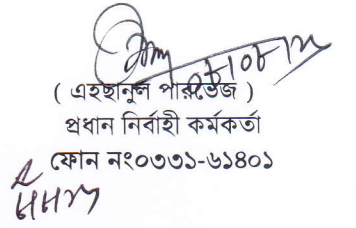 ( এহছানুল পারভেজ )
প্রধান নির্বাহী কর্মকর্তা
ফোন নং০৩৩১-৬১৪০১